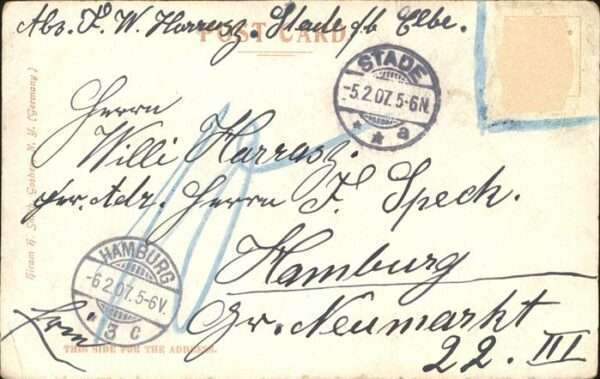 Abs. F. W. Harrasz. Stade b/ Elbe.
POST CARD
STADE
-5.2.07.5-6N.
* * a
Herrn
Willi Harrasz.
per. Adr. Herrn F. Speck.
Hamburg
Gr. Neumarkt
22. III
HAMBURG
-6.2.07.5-6V.
* 3 c
10
THIS SIDE FOR THE ADDRESS.
Goshen N. Y. (Germany)